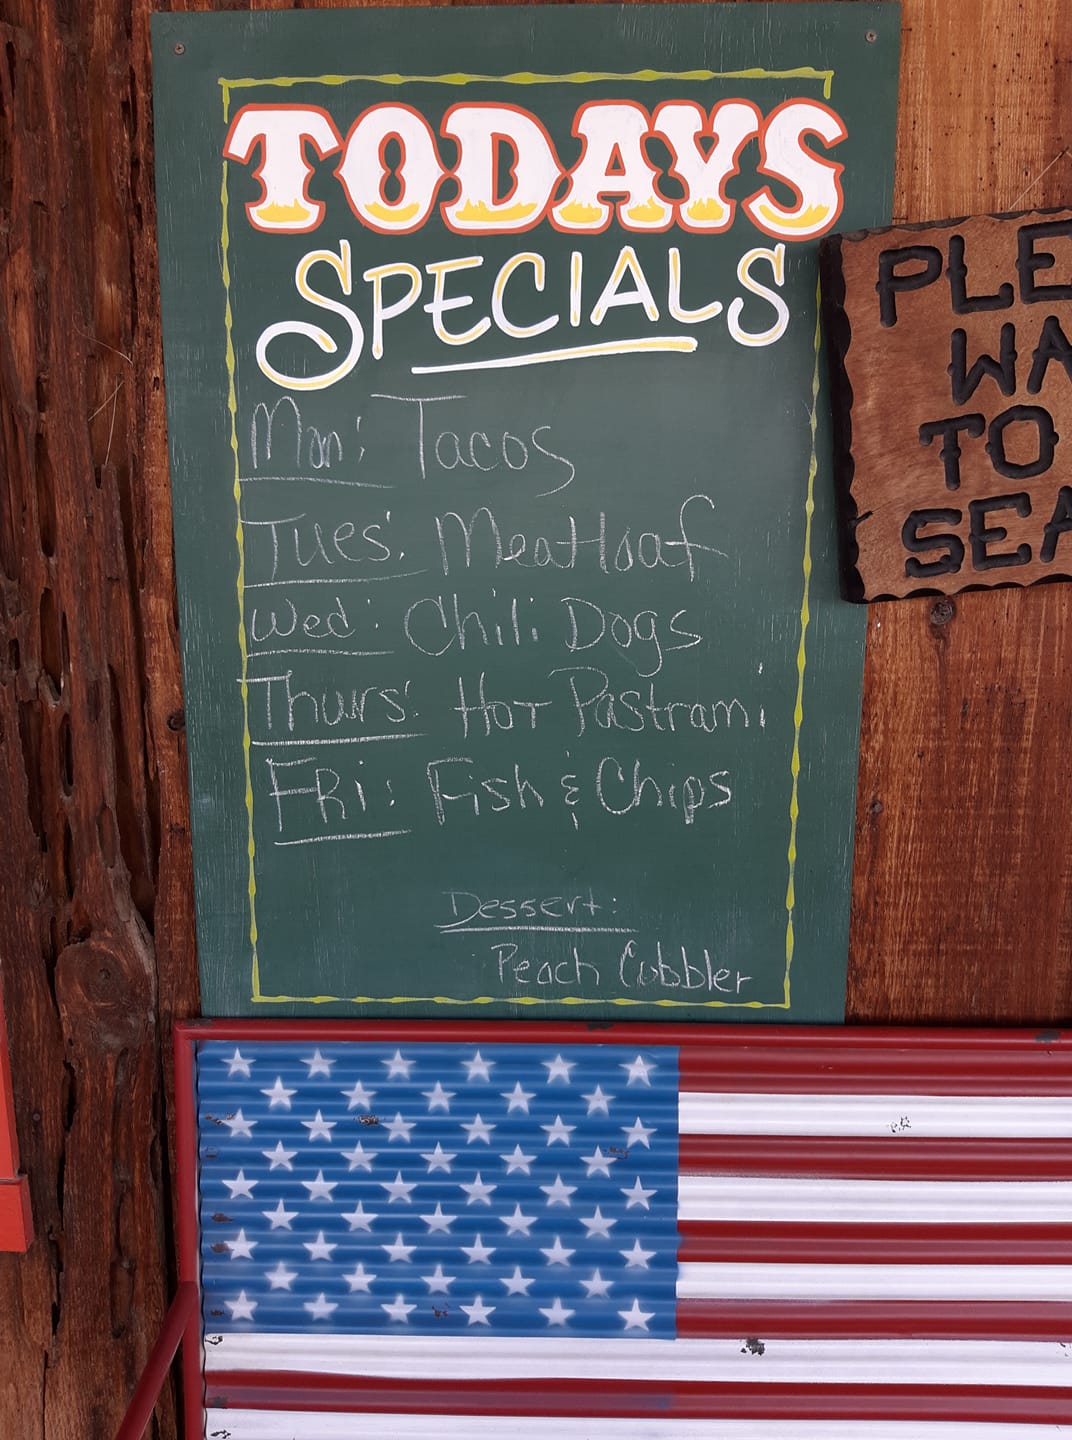 TODAYS
SPECIALS
Mon: Tacos
Tues: Meatloaf
Wed: Chili Dogs
Thurs: Hot Pastrami
FRi: Fish & Chips
Dessert:
Peach Cobbler
PLE
WA
TO
SEA